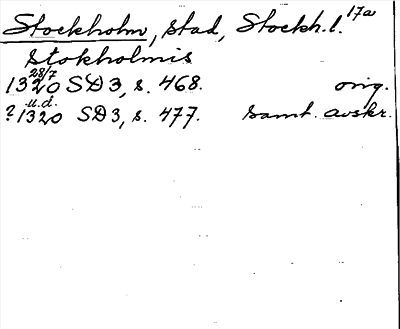 Stockholm, stad, Stockh.l. 17a
Stokholmis
1320 28/7 SD 3, s. 468. orig.
?1320 u.d. SD 3, s. 477. samt. avskr.